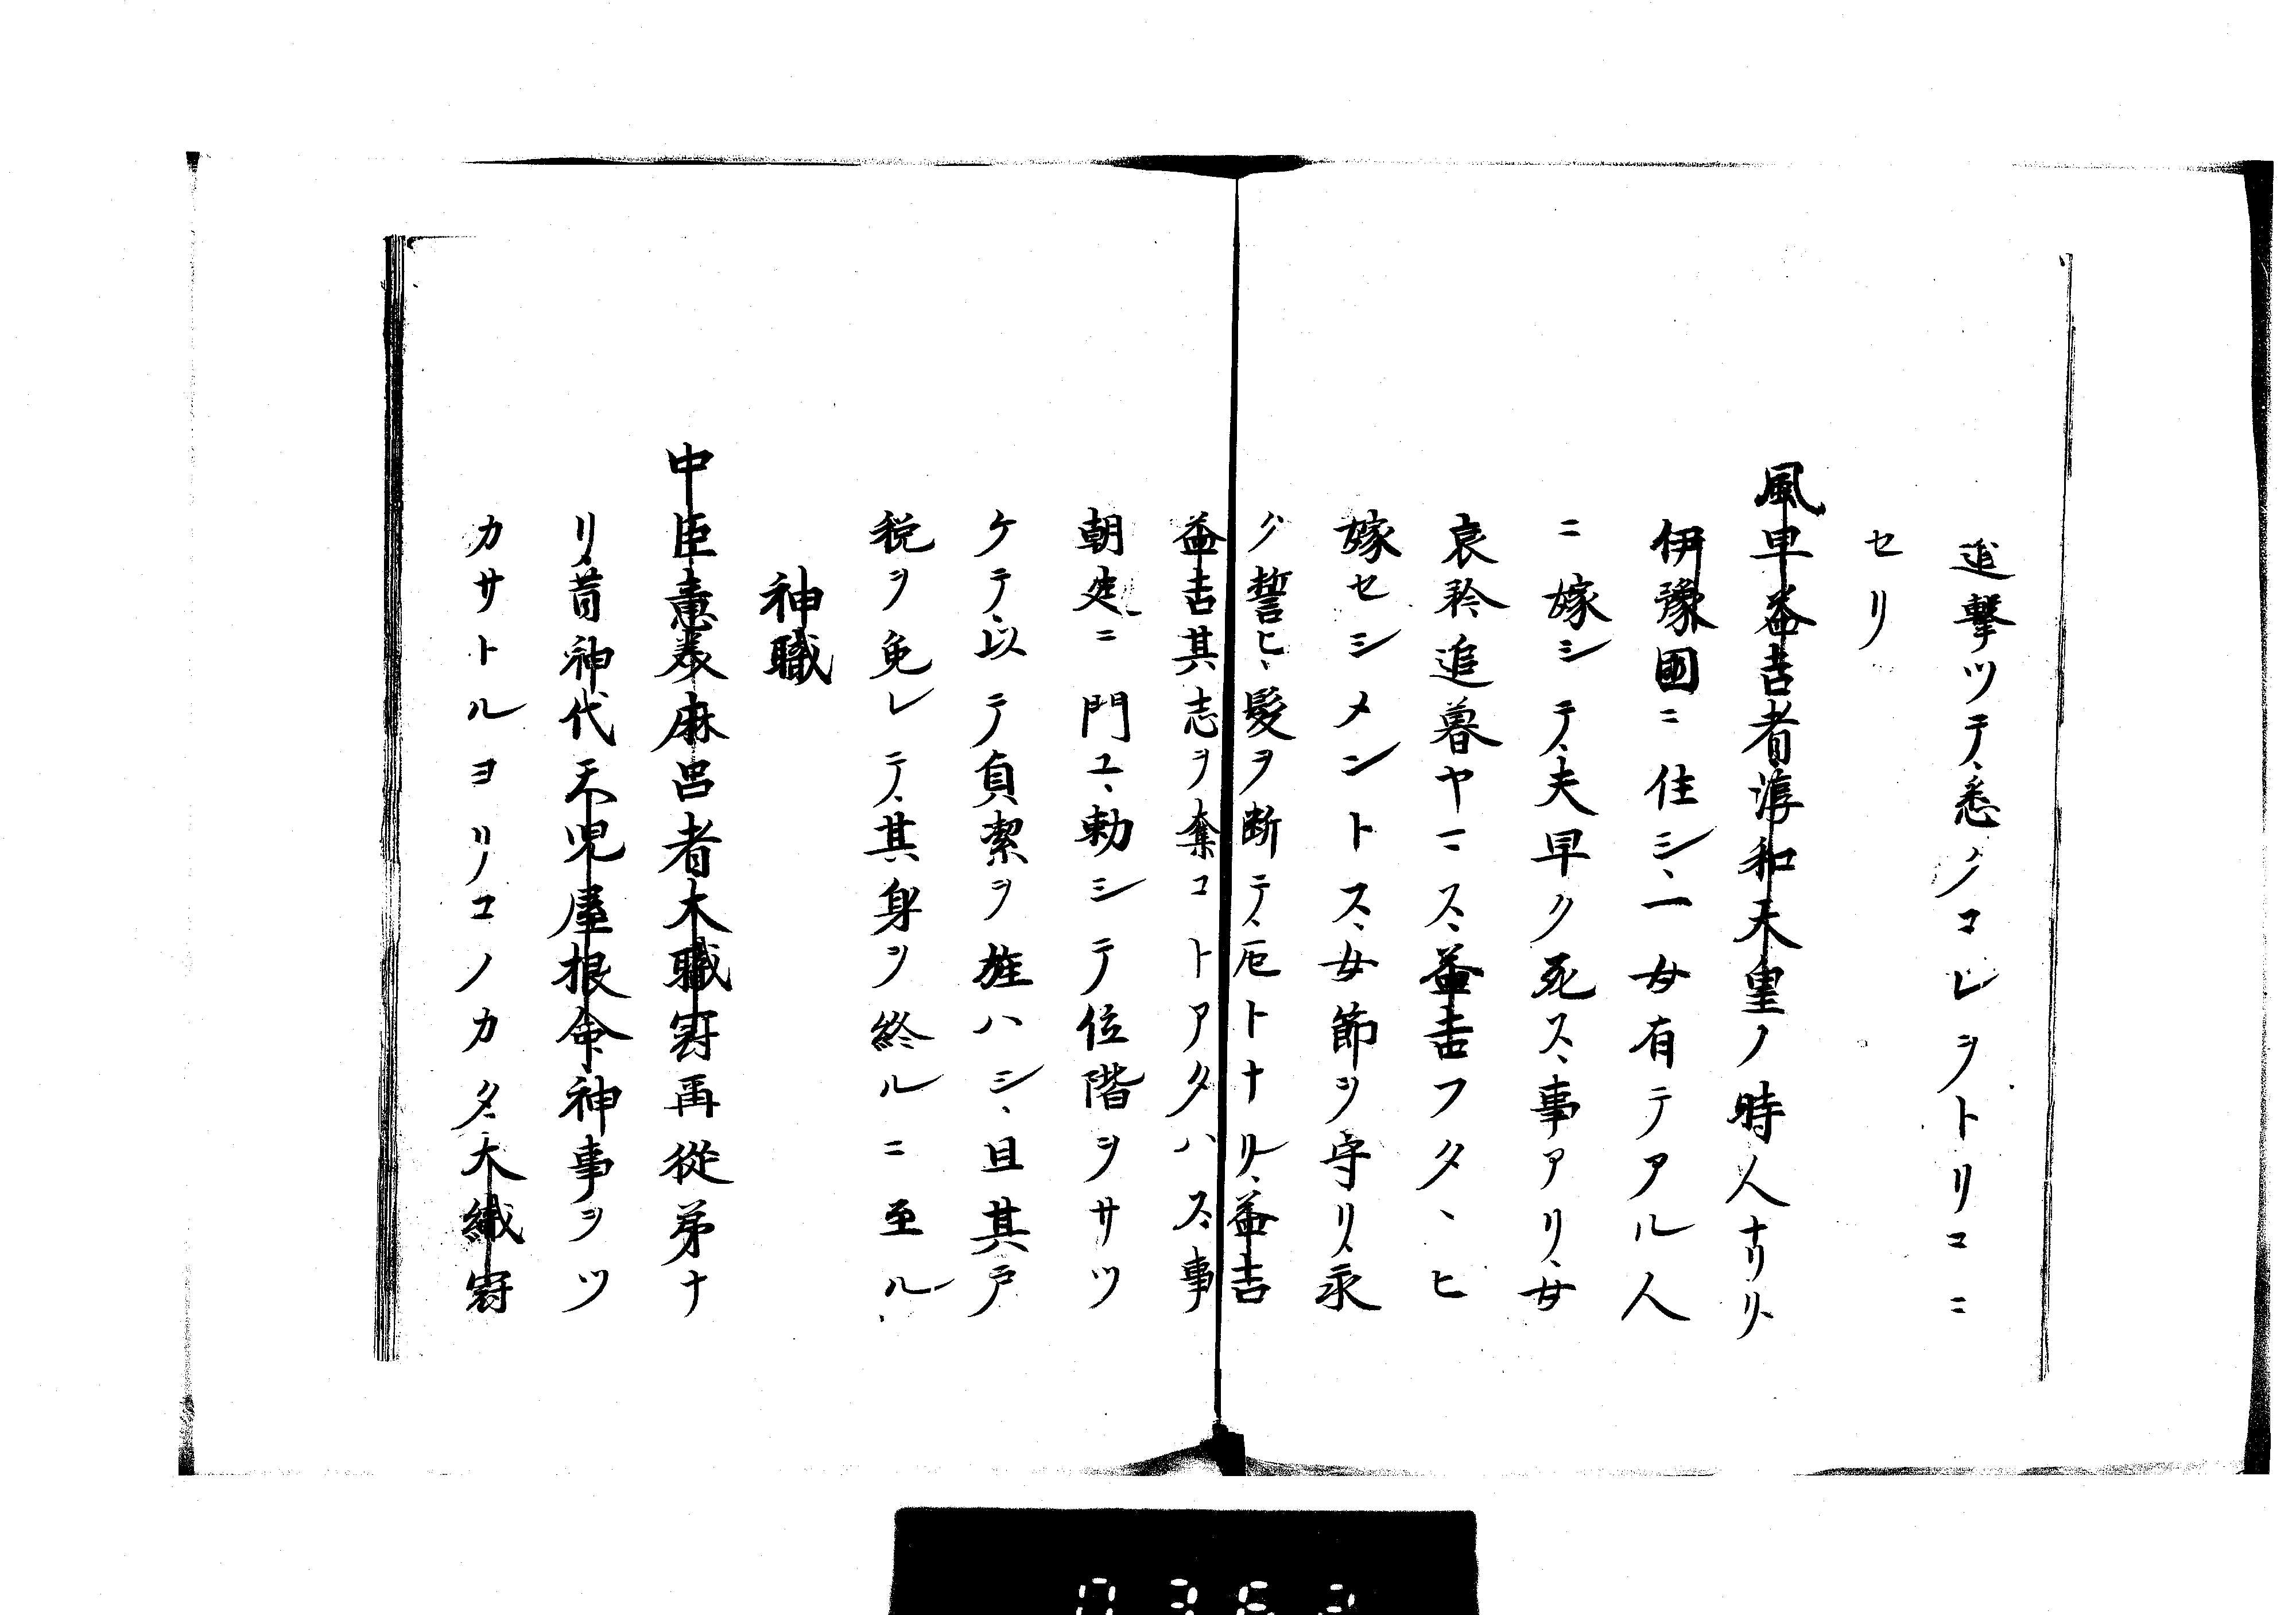 追撃ツテ悉ノコレヲトリコニ
セリ
風早益吉者淳和天皇ノ時人ナリ
伊豫國ニ住シ一女有テアル人
ニ嫁シテ夫早ク死ス事アリ女
哀矜追暮ヤマス益吉フタヽヒ
嫁セシメントス女節ヲ守リ永
ク誓ヒ髮ヲ断テ尼トナリ益吉
益吉其志ヲ奪コトアタハス事
朝廷ニ門ユ勅シテ位階ヲサツ
ケテ以テ貞潔ヲ旌ハシ且其戸
税ヲ免レテ其身ヲ終ルニ至ル
神職
中臣意美麻呂者大職冠再從弟ナ
リ昔神代天児屋根命神事ヲツ
カサトルヨリコノカタ大織冠
0362